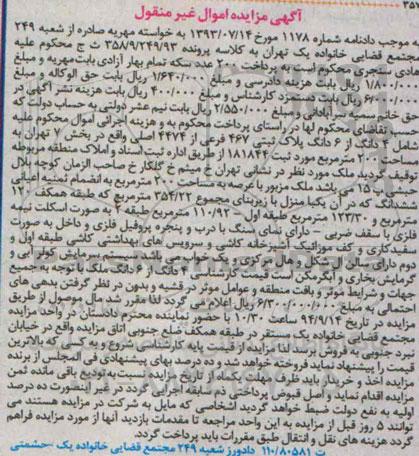 ۳۵۷
آگهی مزایده اموال غیر منقول
به موجب دادنامه شماره ۱۱۷۸ مورخ ۱۳۹۳/۰۷/۱۴ به خواسته مهریه صادره از شعبه ۲۴۹
مجتمع قضایی خانواده یک تهران به کلاسه پرونده ۳۵۸/۹/۲۴۹/۹۳ ث ج محکوم علیه
دی سنجری محکوم است به پرداخت ۲۰۰ عدد سکه تمام بهار آزادی بابت مهریه و مبلغ
۱/۸۰۰/۰۰۰ ریال بابت هزینه دادرسی و مبلغ ۱/۶۴۰/۰۰۰ ریال بابت حق الوکاله و مبلغ
۶/۰۰۰/۰۰۰ ریال بابت دستمزد کارشناسی و مبلغ ۴۰۰/۰۰۰ ریال بابت هزینه نشر آگهی در
حق خانم سمیه سرآبادانی و مبلغ ۲/۵۵۰/۰۰۰ ریال بابت نیم عشر دولتی به حساب دولت که
حسب تقاضای محکوم لها در راستای پرداخت محکوم به و هزینه اجرائی اموال محکوم علیه
شامل ۴ دانگ از ۶ دانگ پلاک ثبتی ۴۶۷ فرعی از ۴۴۷۴ اصلی واقع در بخش ۷ تهران به
مساحت ۲۰۰ مترمربع مورد ثبت ۱۸۱۸۴۴ از طریق اداره ثبت اسناد و املاک منطقه مربوطه
توقیف گردید ملک مورد نظر در نشانی تهران خ میثم خ گلکار خ صاحب الزمان کوچه بلال
حبشی پ ۱۵ می باشد ملک مزبور با عرصه به مساحت ۲۰۰ مترمربع به انضمام ثمنیه اعیانی
ششدانگ که در آن یکبا منزل با زیربنای مجموع ۳۵۴/۲۲ مترمربع که طبقه همکف ۱۲۰
مترمربع و ۱۲۳/۳۰ مترمربع طبقه اول – ۱۱۰/۹۲ مترمربع طبقه ۲ به صورت اسکلت نیمه
فلزی با سقف ضربی – دارای نمای سنگ با درب و پنجره پروفیل فلزی و داخل به صورت
سفیدکاری و کف موزائیک آشپزخانه کاشی و سرویس های بهداشتی کاشی طبقه اول و
دوم دارای سالن ال شکل و هال مرکزی و یک خواب می باشد. سیستم سرمایش کولر آبی و
گرمایش بخاری و آبگرمکن است قیمت کارشناسی ۴ دانگ از ۶ دانگ ملک با توجه به جمیع
جهات و شرایط موثر و بافت منطقه و عوامل موثر در قضیه و بدون در نظر گرفتن بدهی های
احتمالی به مبلغ ۶/۳۰۰/۰۰۰/۰۰۰ ریال اعلام می گردد لذا مقرر شد مال موصول از طریق
مزایده در تاریخ ۹۴/۹/۱۴ ساعت ۱۰/۳۰ با حضور نماینده محترم دادستان در واحد مزایده
مجتمع قضایی خانواده یک مستقر در طبقه همکف ضلع جنوبی اتاق مزایده واقع در خیابان
برد جنوبی به فروش برسد لذا مزایده از قیمت پایه کارشناسی شروع و به کسی که بالاترین
قیمت را پیشنهاد نماید فروخته خواهد شد و ده درصد بهای پیشنهادی فی المجلس از برنده
مزایده اخذ و خریدار باید ظرف مهلت یک ماه از تاریخ مزایده نسبت به تودیع باقی مانده ثمن
مزایده اقدام نماید و اصل قبوض پرداختی ذم سابقه اجرایی گردد در غیر اینصورت ده درصد
اولیه به نفع دولت ضبط خواهد گردید اشخاصی که مایل به شرکت در مزایده هستند می
توانند ۵ روز قبل از مزایده به این واحد مراجعه تا مقدمات بازدید آنها از مورد مزایده فراهم
گردد هزینه های نقل و انتقال طبق مقررات باید پرداخت گردد.
ت ۱۱۰/۸۰۵۸۱ دادورز شعبه ۲۴۹ مجتمع قضایی خانواده یک – حشمتی